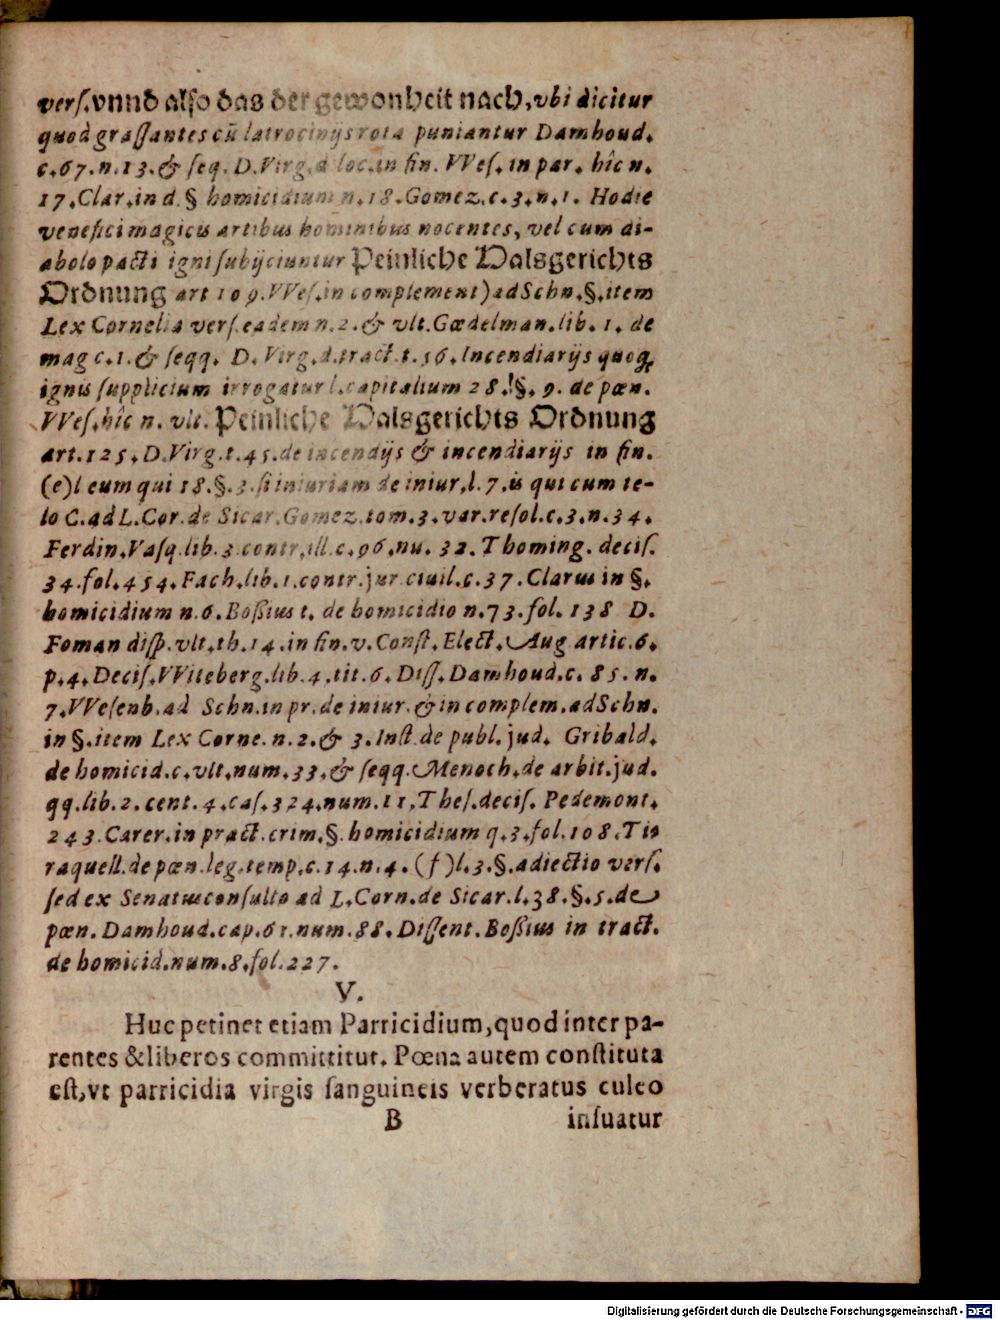 verſ. vnnd alſo das der gewonheit nach, vbi dicitur
quod graſſantes cū latrocinijs rota puniantur Damhoud.
c. 67. n. 13. & ſeq. D. Virg. d. loc. in fin. VVeſ. in par. hîc n.
17. Clar. in d. § homicidium n. 18. Gomez. c. 3. n. 1. Hodie
venefici magicis artibus hominibus nocentes, vel cum di-
abolo pacti igni ſubijciuntur Peinliche Halsgerichts
Ordnung art 109. VVeſ. in complement) ad Schn. §. item
Lex Cornelia verſ. eadem n. 2. & vlt. Gœdelman. lib. 1. de
mag c. 1. & ſeqq. D. Virg. d. tract. t. 56. Incendiarijs quoq;
ignis ſupplicium irrogatur l. capitalium 28. §. 9. de pœn.
VVeſ. hîc n. vlt. Peinliche Halsgerichts Ordnung
art. 125. D. Virg. t. 45. de incendijs & incendiarijs in fin.
(e) l eum qui 18. §. 3. ſi iniuriam de iniur, l. 7. is qui cum te-
lo C. ad L. Cor. de Sicar. Gomez. tom. 3. var. reſol. c. 3. n. 34.
Ferdin. Vaſq. lib. 3 contr. ill. c. 96. nu. 32. Thoming. deciſ.
34. fol. 454. Fach. lib. 1. contr. jur ciuil. c. 37. Clarus in §.
homicidium n. 6. Boßius t. de homicidio n. 73. fol. 138 D.
Foman diſp. vlt. th. 14. in fin. v. Conſt. Elect. Aug artic. 6.
p. 4. Deciſ. VViteberg. lib. 4. tit. 6. Diſſ. Damhoud. c. 85. n.
7. VVeſenb. ad Schn. in pr. de iniur. & in complem. ad Schn.
in §. item Lex Corne. n. 2. & 3. Inſt de publ. jud. Gribald.
de homicid. c. vlt. num. 33. & ſeqq. Menoch. de arbit. jud.
qq. lib. 2. cent. 4. caſ. 324. num. 11, Theſ. deciſ. Pedemont.
243. Carer. in pract. crim. §. homicidium q. 3. fol. 108. Tir
raquell. de pœn. leg. temp. c. 14. n. 4. (f) l. 3. §. adiectio verſ.
ſed ex Senatusconſulto ad L. Corn. de Sicar. l. 38. §. 5. de
pœn. Damhoud. cap. 61. num. 88. Diſſent. Boßius in tract.
de homicid. num. 8. fol. 227.
V.
Huc petinet etiam Parricidium, quod inter pa-
rentes & liberos committitur. Pœna autem conſtituta
eſt, vt parricidia virgis ſanguineis verberatus culeo
B inſuatur
Digitalisierung gefördert durch die Deutsche Forschungsgemeinschaft - DFG